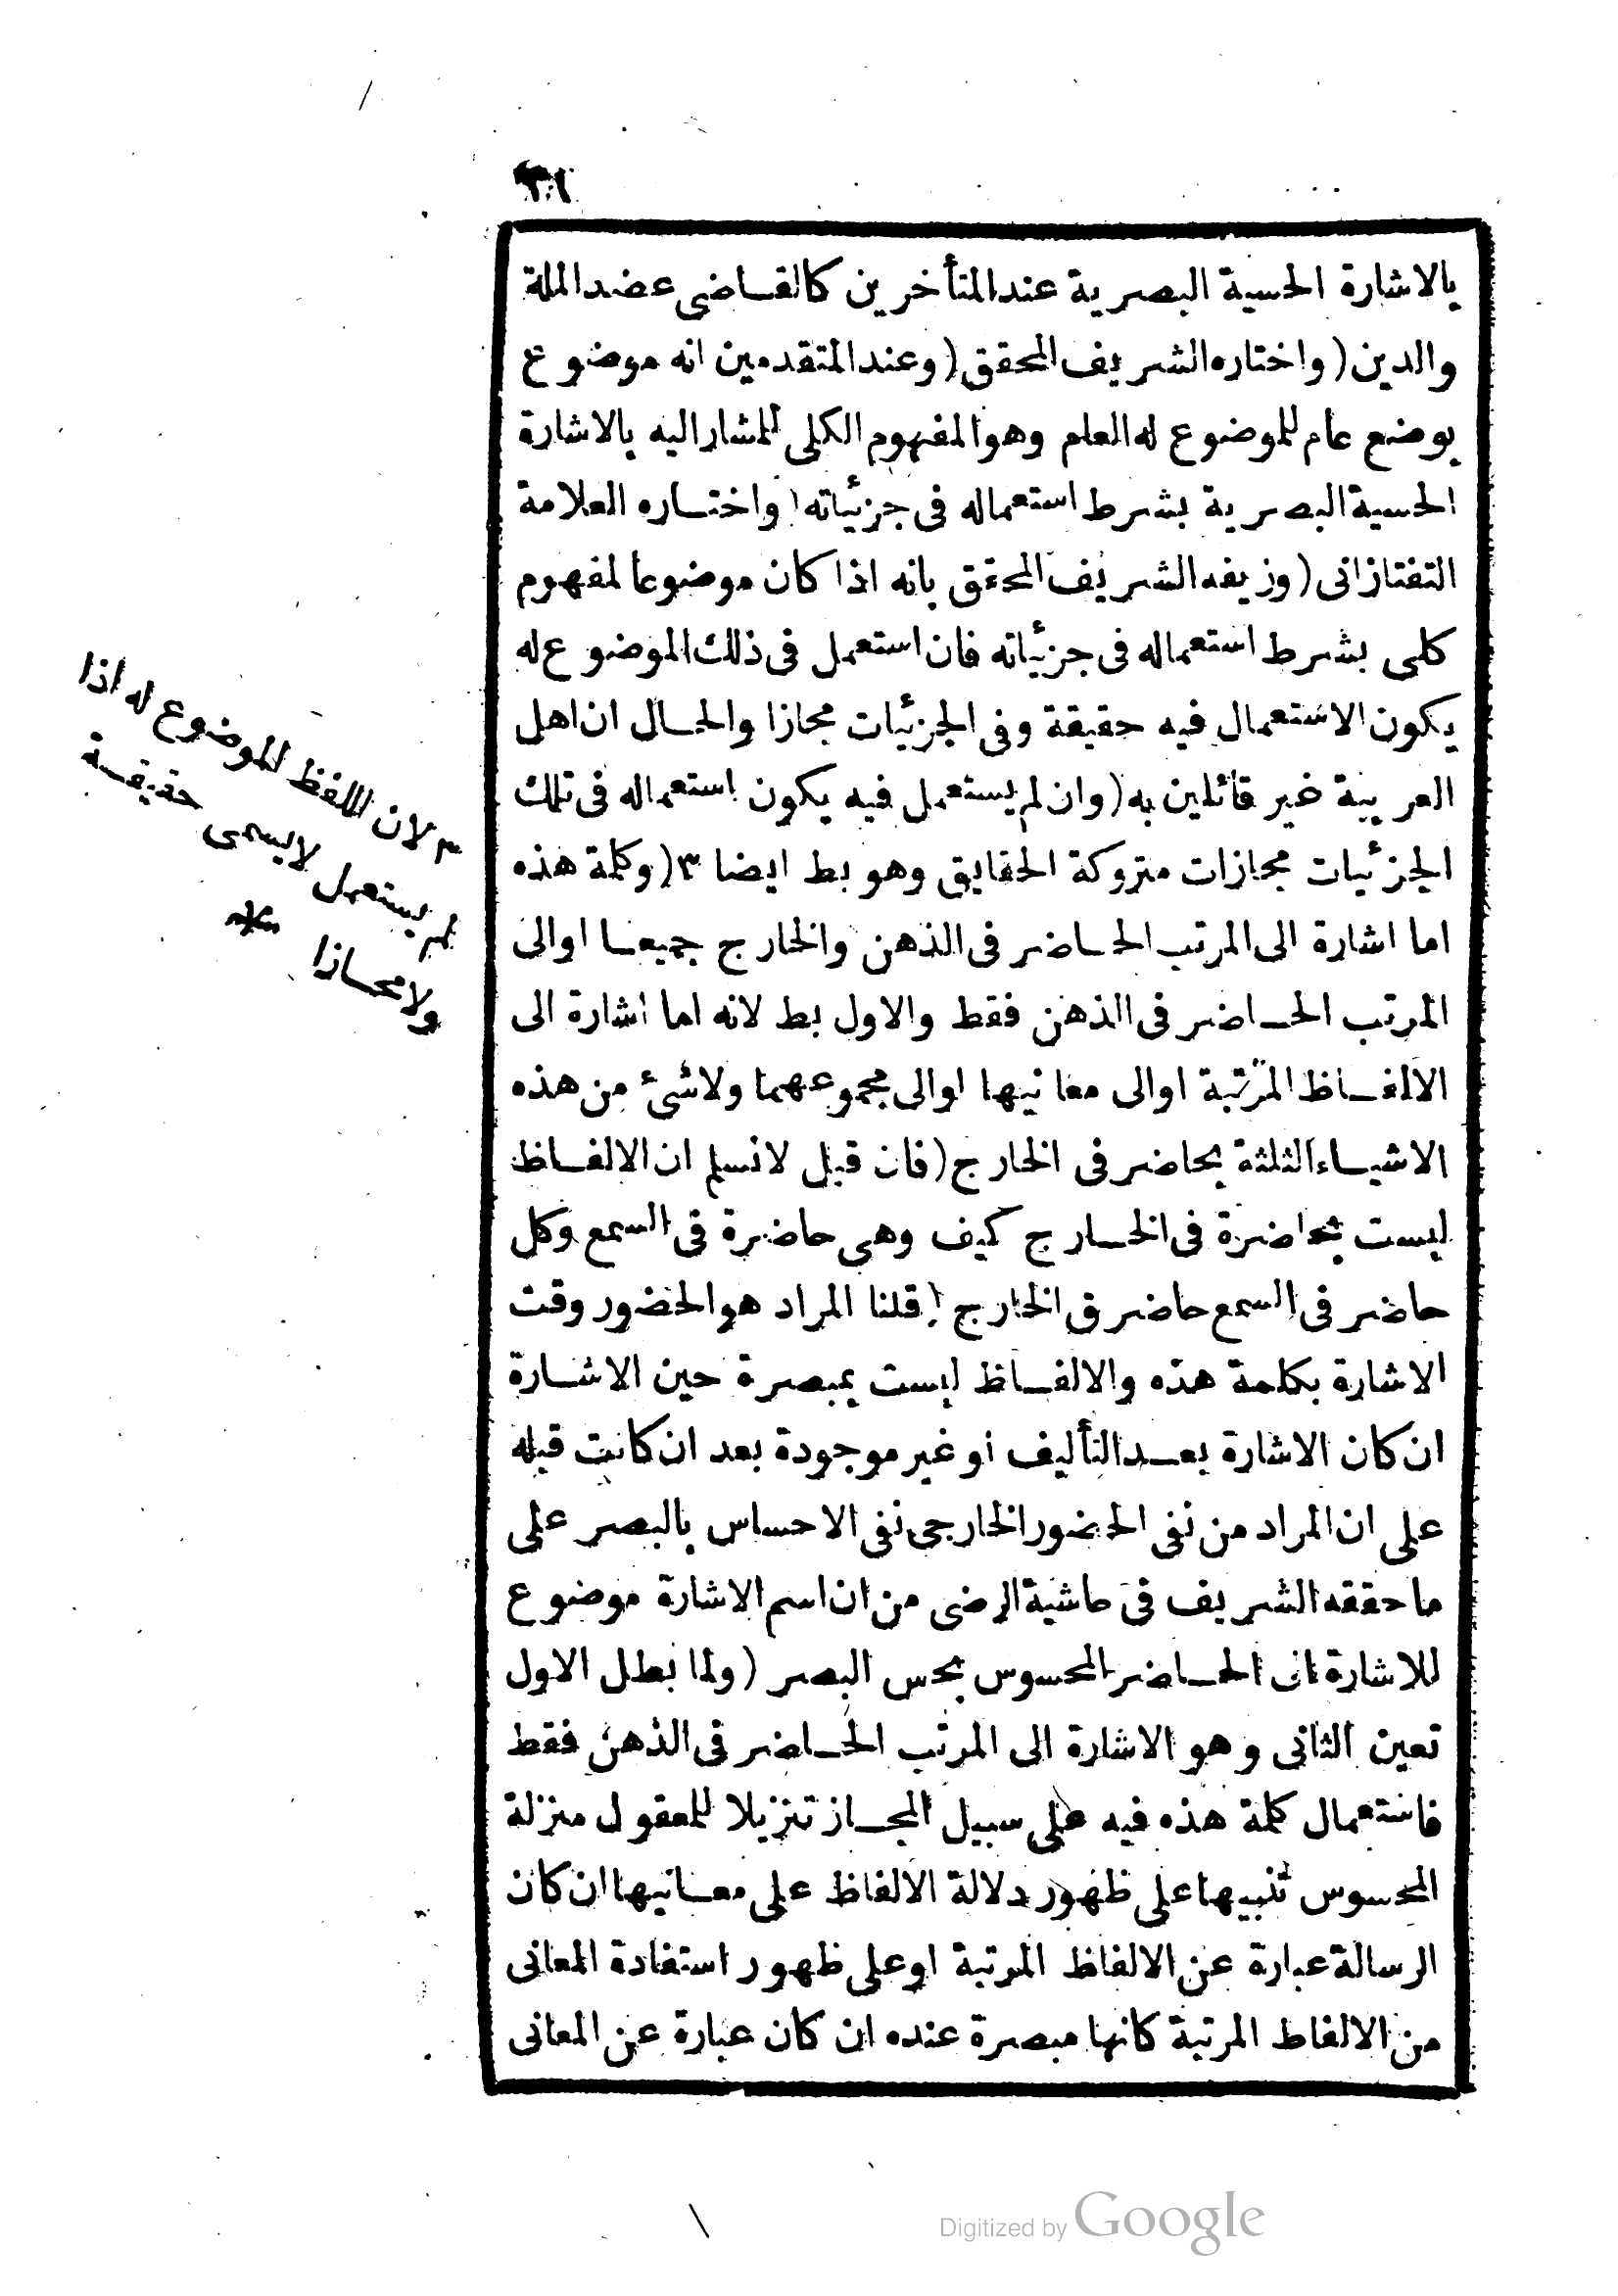 بالاشارة الحسية البصرية عند المتأخرين كالقاضى عضد الملة
والدين ( واختاره الشريف المحقق ( وعند المتقدمين انه موضوع
بوضع عام للموضوع له العلم وهو المفهوم الكلى للمشار اليه بالاشارة
الحسية البصرية بشرط استعماله فى جزئياته ( واختاره العلامة
التفتازانى ( وزيفه الشريف المحقق بانه اذا كان موضوعا لمفهوم
كلى بشرط استعماله فى جزئياته فان استعمل فى ذلك الموضوع له
يكون الاستعمال فيه حقيقة وفى الجزئيات مجازا والحال ان اهل
العربية غير قائلين به ( وان لم يستعمل فيه يكون استعماله فى تلك
الجزئيات مجازات متروكة الحقايق وهو بط ايضا ٣ ( وكلمة هذه
اما اشارة الى المرتب الحاضر فى الذهن والخارج جميعا اوالى
المرتب الحاضر فى الذهن فقط والاول بط لانه اما اشارة الى
الالفاظ المرتبة اوالى معانيها اوالى مجموعهما ولاشئ من هذه
الاشياء الثلثة بحاضر فى الخارج ( فان قيل لانسلم ان الالفاظ
ليست بحاضرة فى الخارج كيف وهى حاضرة فى السمع وكل
حاضر فى السمع حاضر فى الخارج ( قلنا المراد هو الحضور وقت
الاشارة بكلمة هذه والالفاظ ليست بمبصرة حين الاشارة
ان كان الاشارة بعد التأليف او غير موجودة بعد ان كانت قبله
على ان المراد من نفى الحضور الخارجى نفى الاحساس بالبصر على
ماحققه الشريف فى حاشية الرضى من ان اسم الاشارة موضوع
للاشارة الى الحاضر المحسوس بحس البصر ( ولما بطل الاول
تعين الثانى وهو الاشارة الى المرتب الحاضر فى الذهن فقط
فاستعمال كلمة هذه فيه على سبيل المجاز تنزيلا للمعقول منزلة
المحسوس تنبيها على ظهور دلالة الالفاظ على معانيها ان كان
الرسالة عبارة عن الالفاظ المرتبة اوعلى ظهور استفادة المعانى
من الالفاظ المرتبة كانها مبصرة عنده ان كان عبارة عن المعانى
٣ لان اللفظ للموضوع له اذا
لم يستعمل لايسمى حقيقة
ولامجازا
Digitized by Google